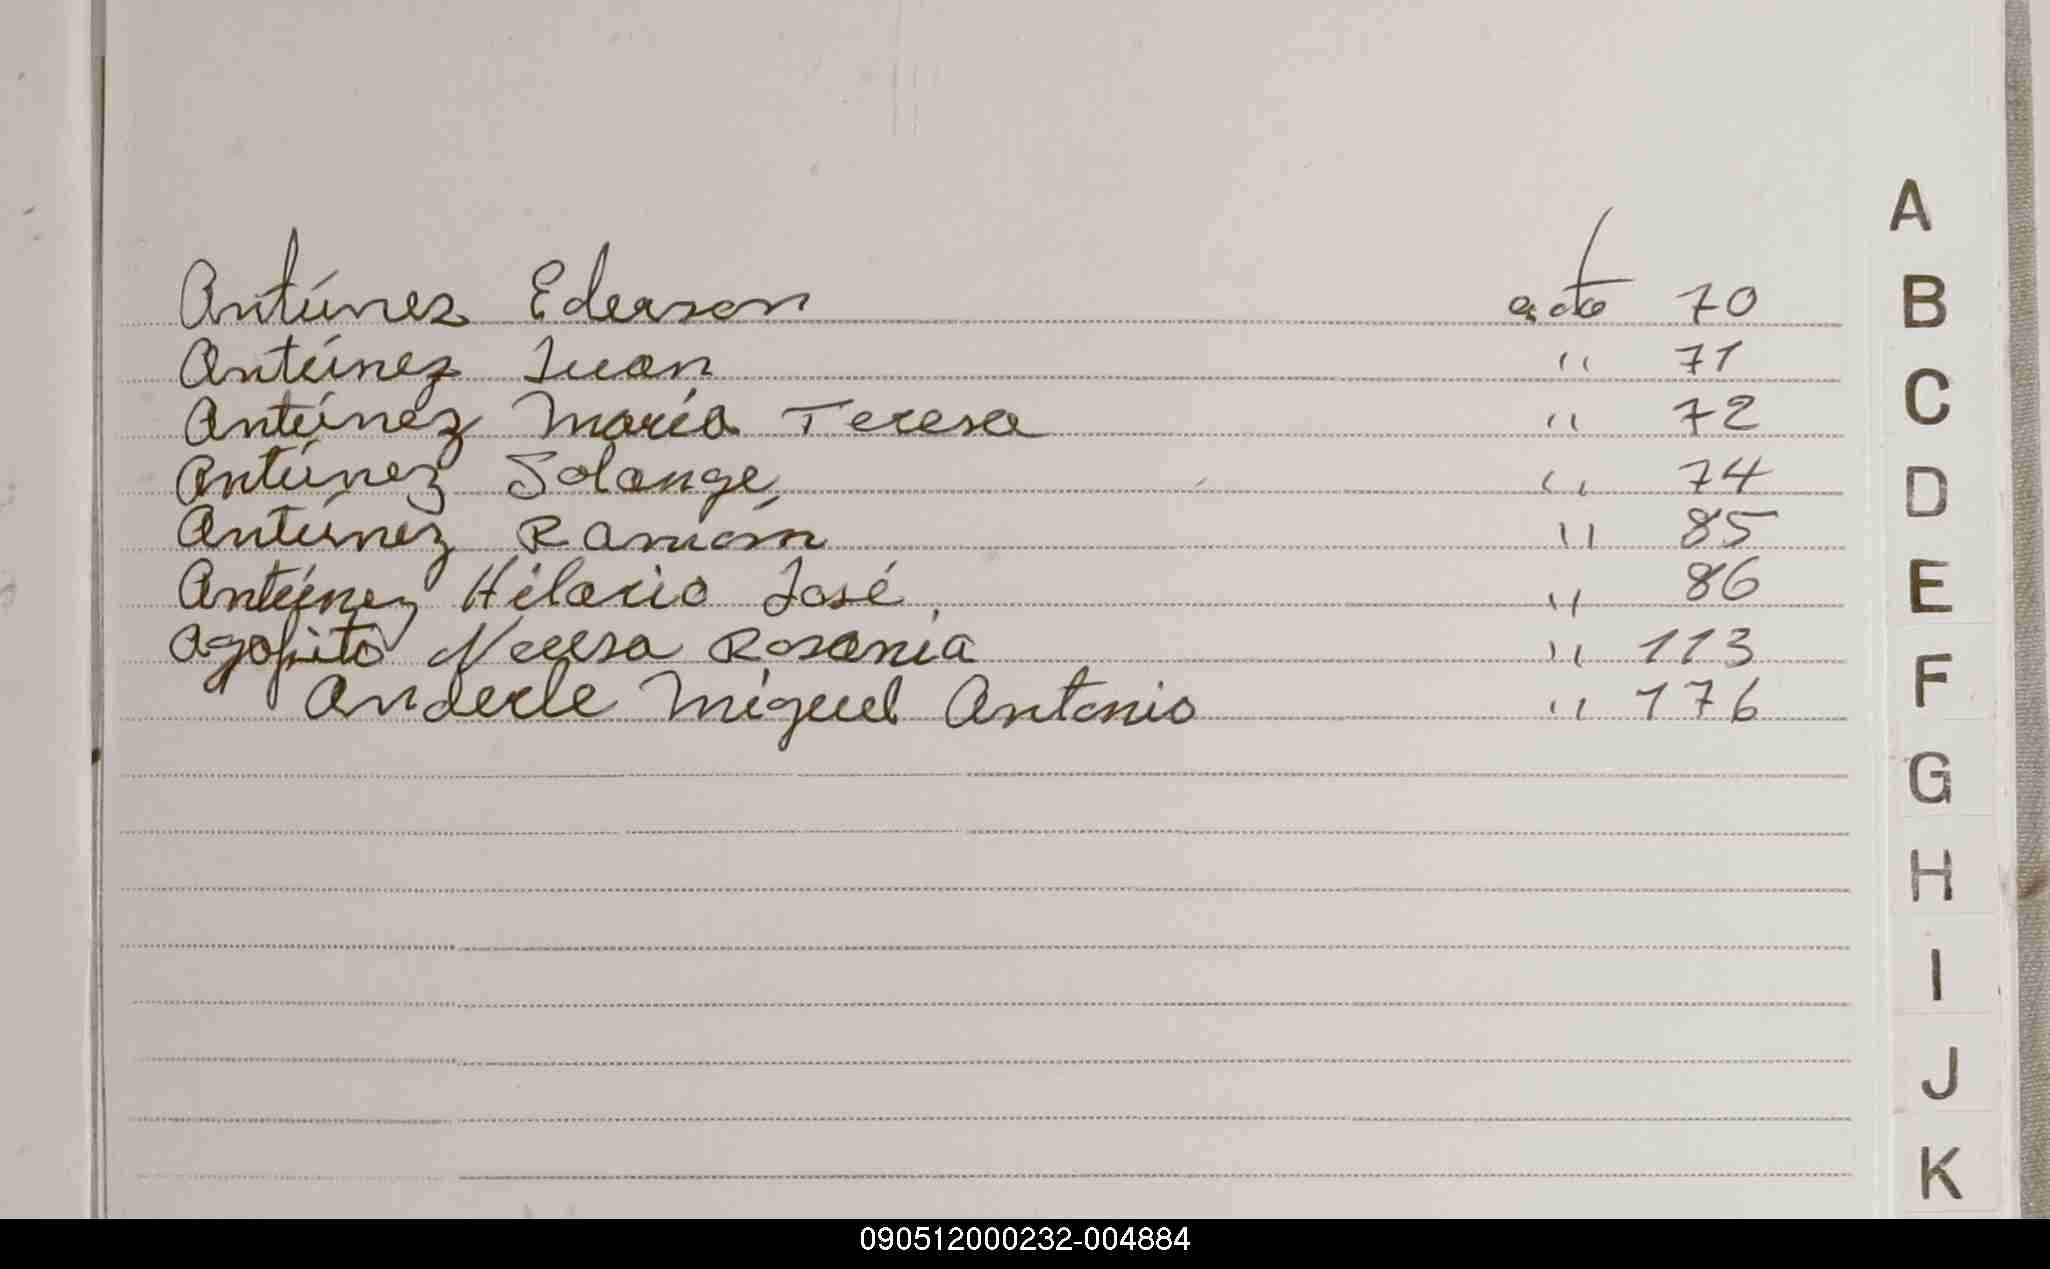 Antúnez Ederson acta 70
Antúnez Juan " 71
Antúnez María Teresa " 72
Antúnez Solange " 74
Antúnez Ramón " 85
Antúnez Hilario José " 86
Agapito Neersa Rosania " 113
Anderle Miguel Antonio " 176
A
B
C
D
E
F
G
H
I
J
K
090512000232-004884